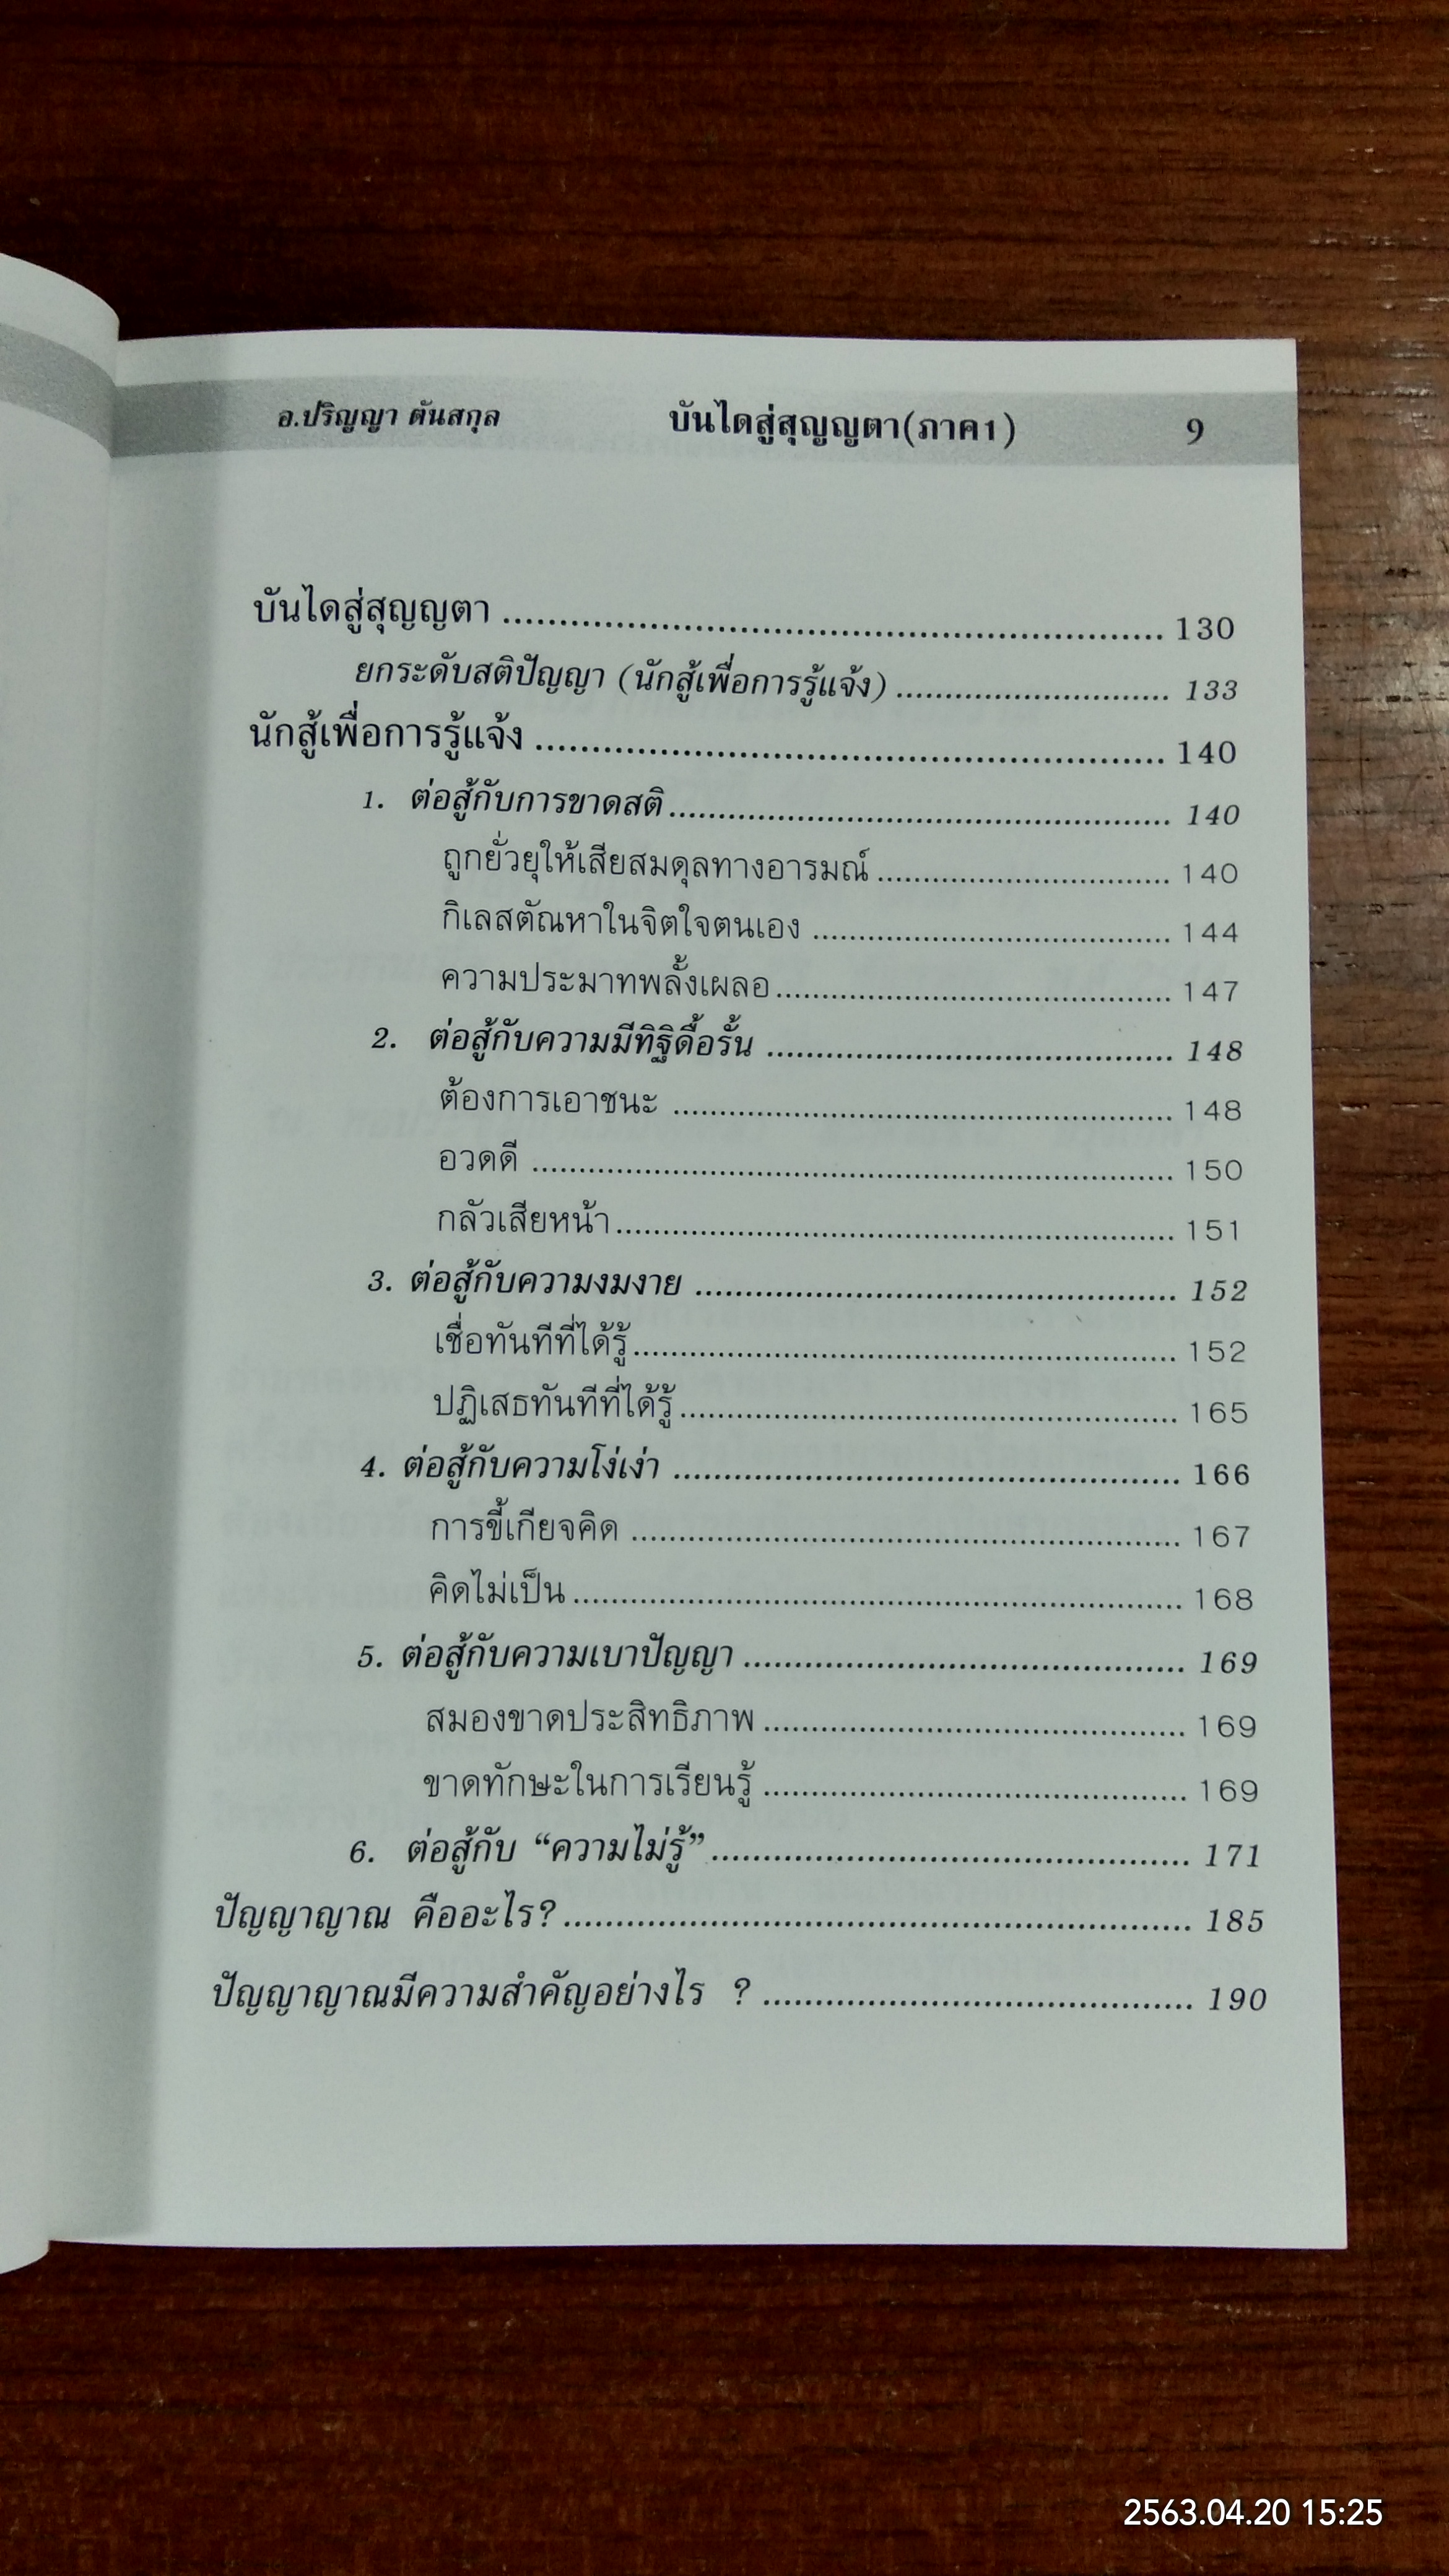 อ.ปริญญา ตันสกุล บันไดสู่สุญญตา(ภาค1) 9
บันไดสู่สุญญตา ........................................ 130
ยกระดับสติปัญญา (นักสู้เพื่อการรู้แจ้ง) ........................................ 133
นักสู้เพื่อการรู้แจ้ง ........................................ 140
1. ต่อสู้กับการขาดสติ ........................................ 140
ถูกยั่วยุให้เสียสมดุลทางอารมณ์ ........................................ 140
กิเลสตัณหาในจิตใจตนเอง ........................................ 144
ความประมาทพลั้งเผลอ ........................................ 147
2. ต่อสู้กับความมีทิฐิดื้อรั้น ........................................ 148
ต้องการเอาชนะ ........................................ 148
อวดดี ........................................ 150
กลัวเสียหน้า ........................................ 151
3. ต่อสู้กับความงมงาย ........................................ 152
เชื่อทันทีที่ได้รู้ ........................................ 152
ปฏิเสธทันทีที่ได้รู้ ........................................ 165
4. ต่อสู้กับความโง่เง่า ........................................ 166
การขี้เกียจคิด ........................................ 167
คิดไม่เป็น ........................................ 168
5. ต่อสู้กับความเบาปัญญา ........................................ 169
สมองขาดประสิทธิภาพ ........................................ 169
ขาดทักษะในการเรียนรู้ ........................................ 169
6. ต่อสู้กับ “ความไม่รู้” ........................................ 171
ปัญญาญาณ คืออะไร? ........................................ 185
ปัญญาญาณมีความสำคัญอย่างไร ? ........................................ 190
2563.04.20 15:25